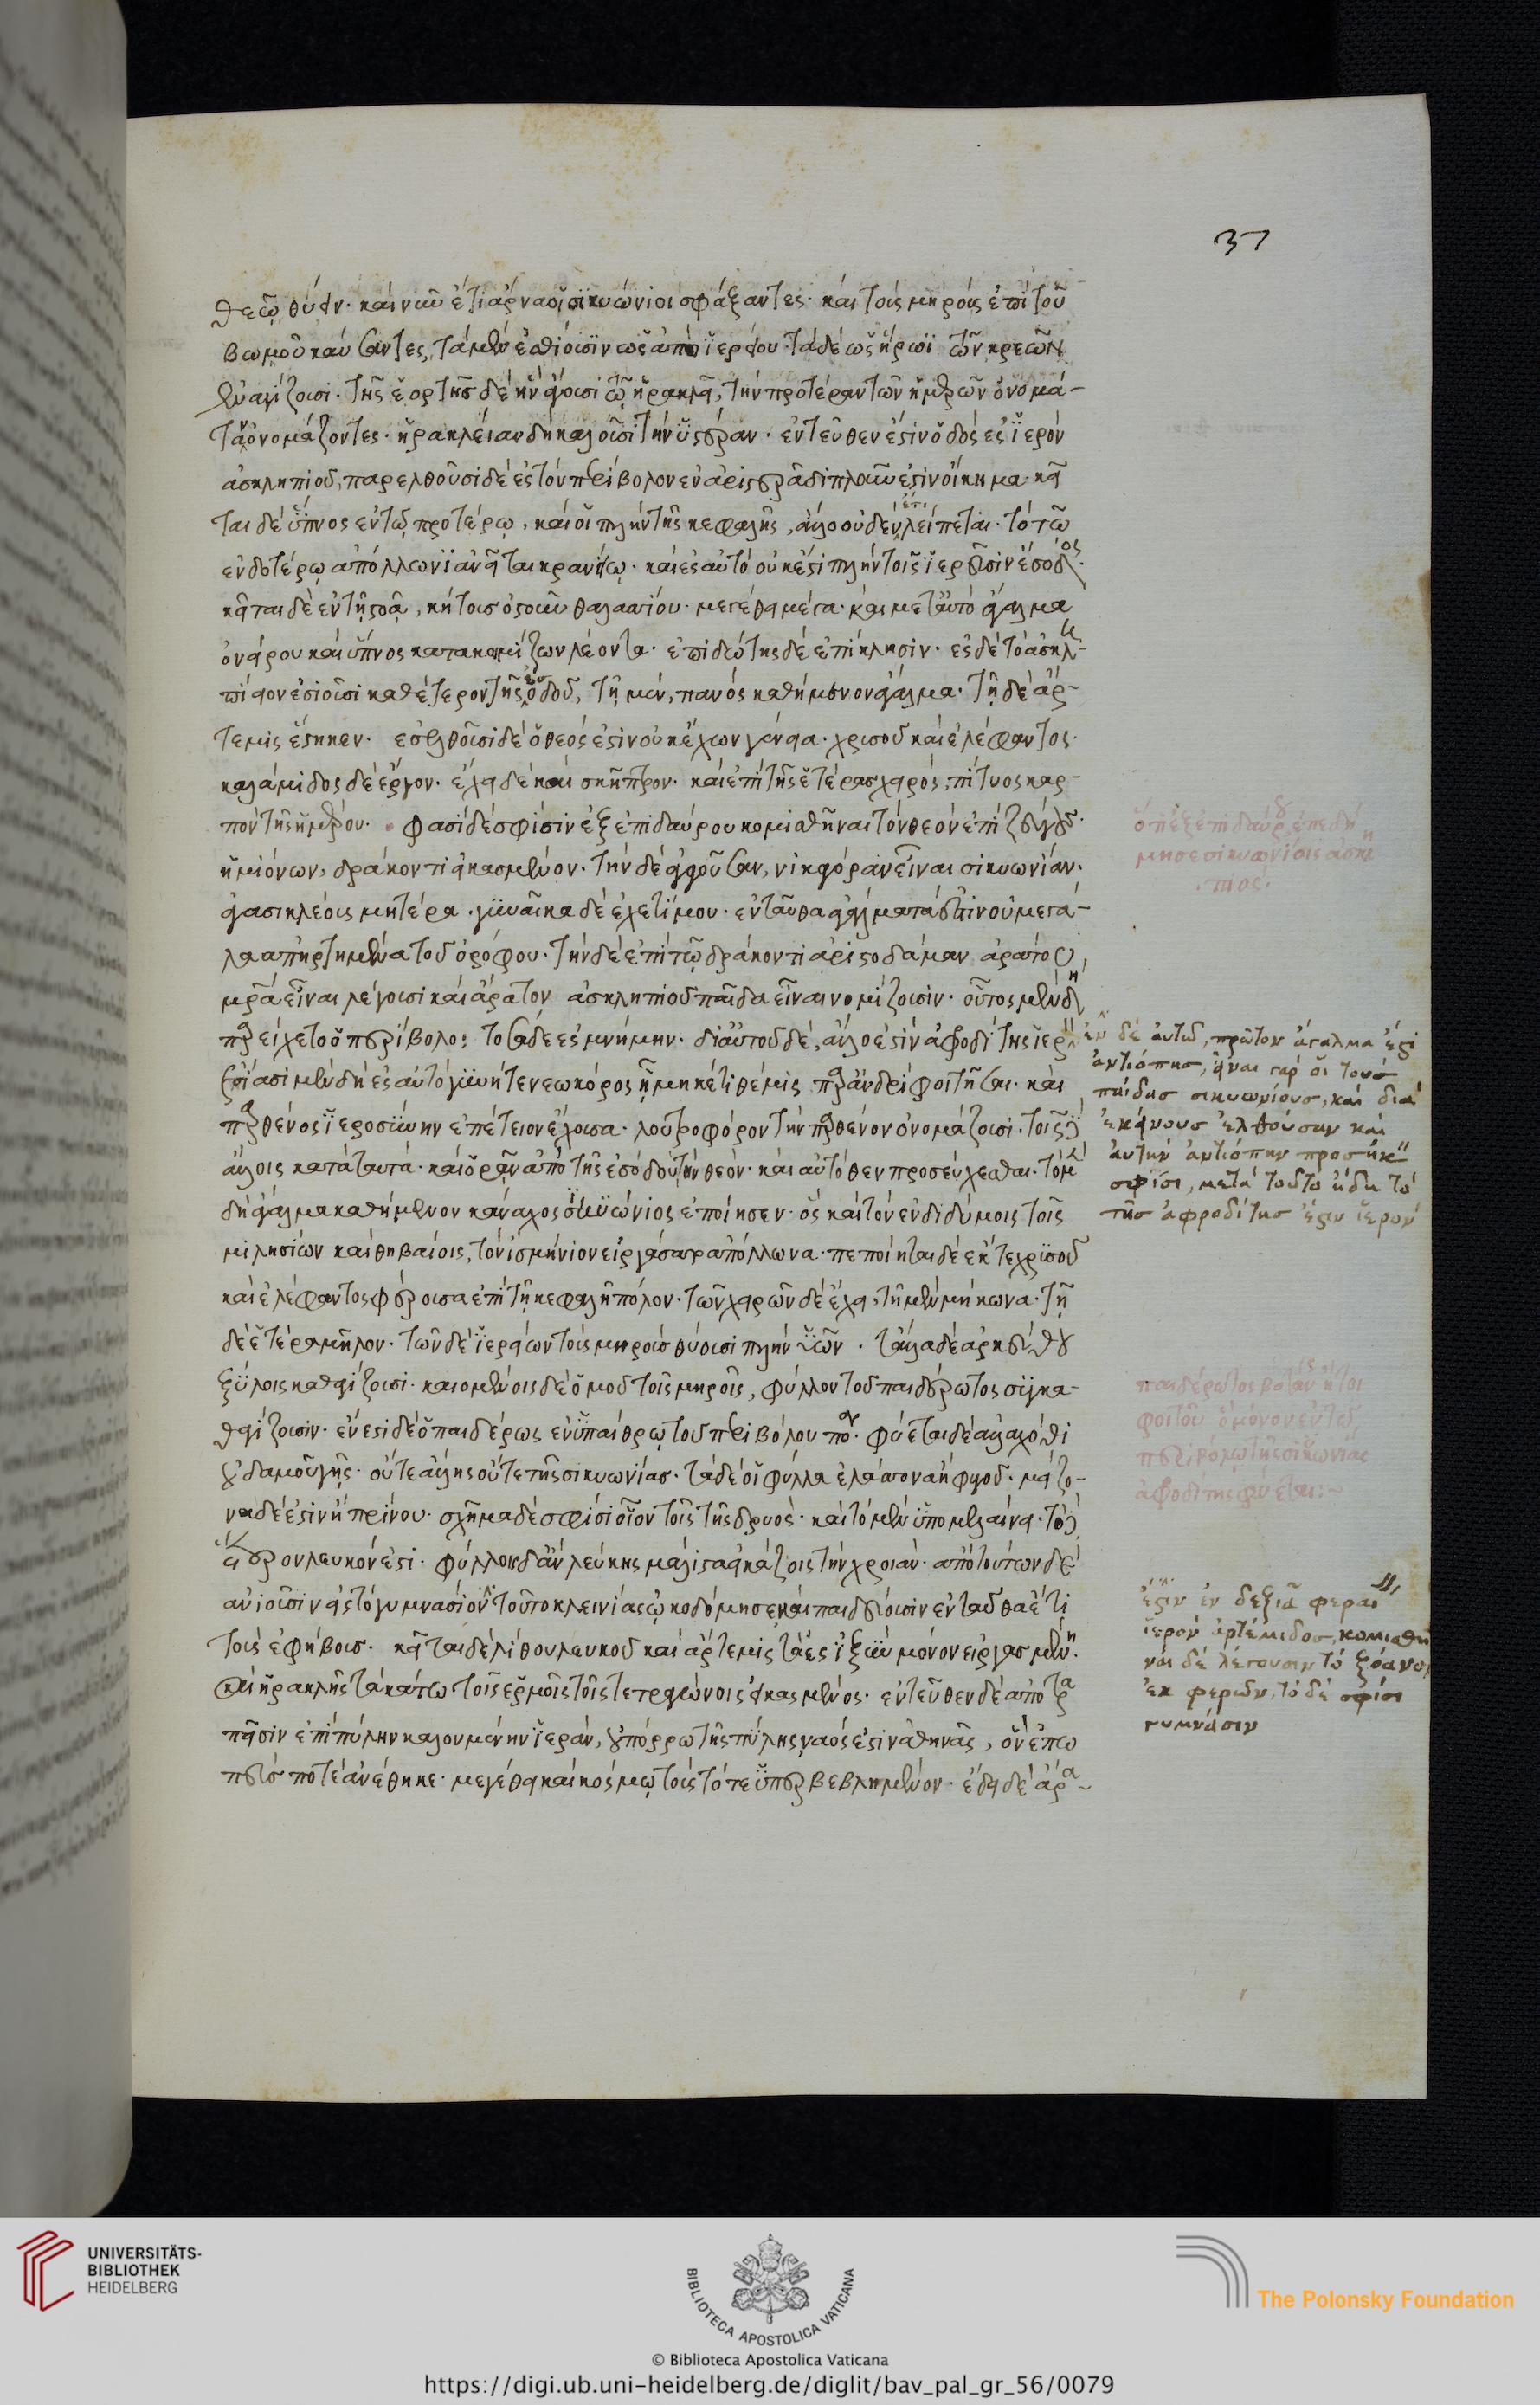 37
θεῷ θύειν· καὶ νῦν ἔτι ἄρνα οἱ σικυώνιοι σφάξαντες· καὶ τοὺς μηροὺς ἐπὶ τοῦ
βωμοῦ καύσαντες, τὰ μὲν ἐσθίουσιν ὡς ἀπὸ ἱερείου· τὰ δὲ ὡς ἥρωι τῶν κρεῶν
ἐναγίζουσι· τῆς ἑορτῆς δὲ ἣν ἄγουσι τῷ ἡρακλεῖ, τὴν προτέραν τῶν ἡμερῶν ὀνόμα-
τα ὀνομάζοντες· ἡράκλειαν δὴ καλοῦσι τὴν ὑστέραν· ἐντεῦθέν ἐστιν ὁδὸς ἐς ἱερὸν
ἀσκληπιοῦ, παρελθοῦσι δὲ ἐς τὸν περίβολον ἐν ἀριστερᾷ διπλοῦν ἐστιν οἴκημα· κεῖ
ται δὲ ὕπνος ἐν τῷ προτέρῳ, καί οἱ πλὴν τῆς κεφαλῆς, ἄλλο οὐδὲν ἔτι λείπεται· τὸ τῷ
ἐνδοτέρῳ ἀπόλλωνι ἀνεῖται καρνείῳ· καὶ ἐς αὐτὸ οὐκ ἔστι πλὴν τοῖς ἱερεῦσιν ἔσοδος·
κεῖται δὲ ἐν τῇ στοᾷ, κήτους ὀστοῦν θαλασσίου· μεγέθει μέγα· καὶ μετ' αὐτὸ ἄγαλμα
ὀνείρου καὶ ὕπνος κατακοιμίζων λέοντα· ἐπιδώτης δὲ ἐπίκλησιν· ἐς δὲ τὸ ἀσκλη-
πιεῖον ἐσιοῦσι καθ' ἕτερον τῆς ἐσόδου, τῇ μὲν, πανὸς καθήμενον ἄγαλμα· τῇ δὲ ἄρ-
τεμις ἕστηκεν· ἐσελθοῦσι δὲ ὁ θεός ἐστιν οὐκ ἔχων γένεια· χρυσοῦ καὶ ἐλέφαντος·
καλάμιδος δὲ ἔργον· ἔχει δὲ καὶ σκῆπτρον· καὶ ἐπὶ τῆς ἑτέρας χειρὸς, πίτυος καρ-
πὸν τῆς ἡμέρου· φασὶ δέ σφισιν ἐξ ἐπιδαύρου κομισθῆναι τὸν θεὸν ἐπὶ ζεύγους
ἡμιόνων, δράκοντι εἰκασμένον· τὴν δὲ ἀγοῦσαν, νικαγόραν εἶναι σικυωνίαν·
ἀγασικλέους μητέρα· γυναῖκα δὲ ἐχετίμου· ἐνταῦθα ἀγάλματά ἐστιν οὐ μεγά-
λα ἀπηρτημένα τοῦ ὀρόφου· τὴν δὲ ἐπὶ τῷ δράκοντι ἀριστοδάμαν ἀράτου,
μητέρα εἶναι λέγουσι καὶ ἄρατον ἀσκληπιοῦ παῖδα εἶναι νομίζουσιν· οὗτος μὲν δὴ
παρείχετο ὁ περίβολος τοσάδε ἐς μνήμην· δι' αὐτοῦ δὲ, ἄλλο ἐστὶν ἀφροδίτης ἱερόν
ἐσίασι μὲν δὴ ἐς αὐτὸ γυνή τε νεωκόρος ᾗ μηκέτι θέμις παρ' ἄνδρα φοιτῆσαι· καὶ
παρθένος ἱερωσύνην ἐπέτειον ἔχουσα· λουτροφόρον τὴν παρθένον ὀνομάζουσι· τοῖς δὲ
ἄλλοις κατὰ ταὐτὰ· καὶ ὁρᾶν ἀπὸ τῆς ἐσόδου τὴν θεὸν· καὶ αὐτόθεν προσεύχεσθαι· τὸ μὲν
δὴ ἄγαλμα καθήμενον κάναχος σικυώνιος ἐποίησεν· ὃς καὶ τὸν ἐν διδύμοις τοῖς
μιλησίων καὶ θηβαίοις, τὸν ἰσμήνιον εἰργάσατο ἀπόλλωνα· πεποίηται δὲ ἔκ τε χρυσοῦ
καὶ ἐλέφαντος φέρουσα ἐπὶ τῇ κεφαλῇ πόλον· τῶν χειρῶν δὲ ἔχει, τῇ μὲν μήκωνα· τῇ
δὲ ἑτέρᾳ μῆλον· τῶν δὲ ἱερείων τοὺς μηροὺς θύουσι πλὴν ὑῶν· τἆλλα δὲ ἀρκεύθου
ξύλοις καθαγίζουσι· καιομένοις δὲ ὁμοῦ τοῖς μηροῖς, φύλλον τοῦ παιδέρωτος συγκα-
θαγίζουσιν· ἔνεστι δὲ ὁ παιδέρως ἐν ὑπαίθρῳ τοῦ περιβόλου πόα· φύεται δὲ ἀλλαχόθι
οὐδαμοῦ γῆς· οὔτε ἄλλης οὔτε τῆς σικυωνίας· τὰ δέ οἱ φύλλα ἐλάσσονα ἢ φηγοῦ· μείζο-
να δέ ἐστιν ἢ πρίνου· σχῆμα δέ σφισιν οἷον τοῖς τῆς δρυός· καὶ τὸ μὲν ὑπομελαίνει· τὸ δὲ
ἕτερον λευκόν ἐστι· φύλλοις δ' ἂν λεύκης μάλιστα εἰκάζοις τὴν χροιάν· ἀπὸ τούτων δὲ
ἀνιοῦσιν ἐς τὸ γυμνάσιον τοῦτο κλεινίας ᾠκοδόμησε καὶ παιδεύουσιν ἐνταῦθα ἔτι
τοὺς ἐφήβους· κεῖται δὲ λίθου λευκοῦ καὶ ἄρτεμις τὰ ἐς ἰξὺν μόνον εἰργασμένη·
καὶ ἡρακλῆς τὰ κάτω τοῖς ἑρμοῖς τοῖς τετραγώνοις εἰκασμένος· ἐντεῦθεν δὲ ἀποτρα
πεῖσιν ἐπὶ πύλην καλουμένην ἱεράν, οὐ πόρρω τῆς πύλης ναός ἐστιν ἀθηνᾶς, ὃν ἐπω
πεύς ποτε ἀνέθηκε· μεγέθει καὶ κόσμῳ τοὺς τότε ὑπερβεβλημένον· ἔδει δὲ ἄρα
ὅτι ἐξ ἐπιδαύρου ἐπεδή
μησε σικυωνίοις ἀσκλη
πιός·
ἐν δὲ αὐτῷ, πρῶτον ἄγαλμά ἐστι
ἀντιόπης, εἶναι γάρ οἱ τοὺς
παῖδας σικυωνίους, καὶ δι'
ἐκείνους ἐλθοῦσαν καὶ
αὐτὴν ἀντιόπην προσήκειν
σφίσι, μετὰ τοῦτο ἤδη τὸ
τῆς ἀφροδίτης ἐστὶν ἱερόν
παιδέρωτος βοτάνη
ἀφροδίτης φύεται:~
ἐστιν ἐν δεξιᾷ φεραίας
ἱερὸν ἀρτέμιδος, κομισθῆ
ναι δὲ λέγουσιν τὸ ξόανον
ἐκ φερῶν, τὸ δέ σφισι
γυμνάσιον
UNIVERSITÄTS-
BIBLIOTHEK
HEIDELBERG
BIBLIOTECA APOSTOLICA VATICANA
The Polonsky Foundation
© Biblioteca Apostolica Vaticana
https://digi.ub.uni-heidelberg.de/diglit/bav_pal_gr_56/0079